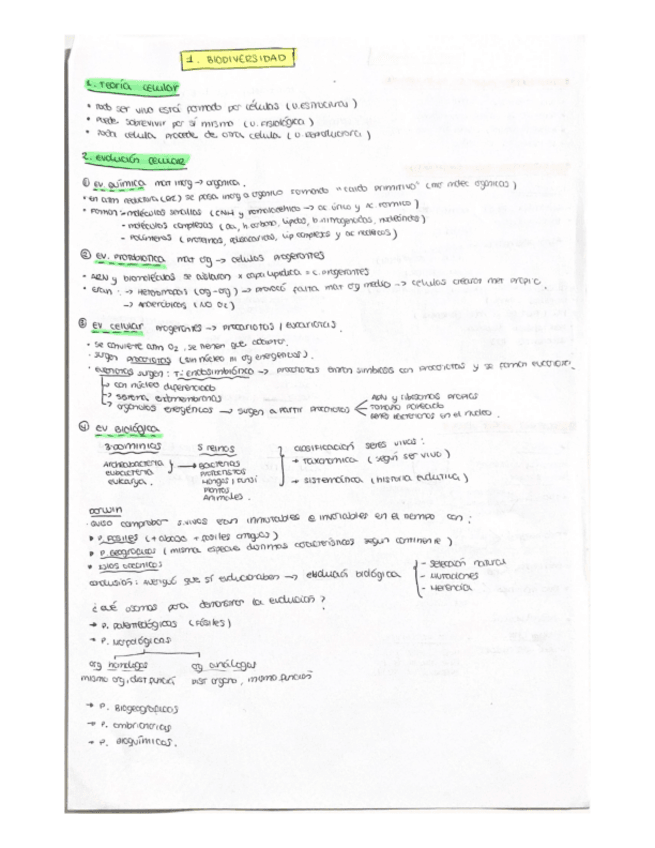 1. BIODIVERSIDAD
1. Teoría celular
• todo ser vivo está formado por células (U. estructural)
• Puede sobrevivir por sí mismo (U. Fisiológica)
• toda célula procede de otra célula (U. reproductora)
2. Evolución celular
① Ev. química mat inorg → orgánica.
• en atm reductora se pasa inorg a orgánico formando "caldo primitivo" (orgánicas)
• Forman → moléculas sencillas
- moléculas complejas
- Polímeros (proteínas,
② Ev. Prebiótica mat org → células progerontes
• ARN y biomoléculas se aislaron x capa lipídica = c. progerontes
• eran: → Heterótrofos (org-org) → provocó falta mat org medio → células crearon mat propia.
→ Anaeróbicos (NO O₂)
③ Ev celular Progerontes → procariotas / eucariotas.
• se convierte atm O₂, se tienen que adaptar.
• surgen procariotas (sin núcleo ni org energéticos).
• eucariotas surgen: T. endosimbiótica → procariotas simbiosis con procariotas y se forman
→ con núcleo diferenciado
→ sistema endomembranas
→ orgánulos energéticos → surgen a partir procariotas
ADN y ribosomas propios
tamaño parecido
genes bacterianos en el núcleo.
④ EV Biológica
3 dominios 5 reinos
Archeobacteria
eubacteria
eukarya.
→ Bacterias
Protoctistas
Hongos / Fungi
Plantas
Animales.
clasificación seres vivos:
→ taxonómica (según ser vivo)
→ sistemática (historia evolutiva)
Darwin
• quiso comprobar s. vivos eran inmutables e invariables en el tiempo con:
• P. fósiles (+ abajo = fósiles antiguos)
• P. geográficas (misma especie distintas características según continente)
• islas oceánicas
conclusión: averiguó que sí evolucionaban → evolución biológica
- selección natural
- Mutaciones
- Herencia.
¿Qué usamos para demostrar la evolución?
→ P. paleontológicas (fósiles)
→ P. Morfológicas
org homólogos org análogos
mismo org, dist función dist órgano, misma función
→ P. Biogeográficas
→ P. embrionarias
→ P. Bioquímicas.